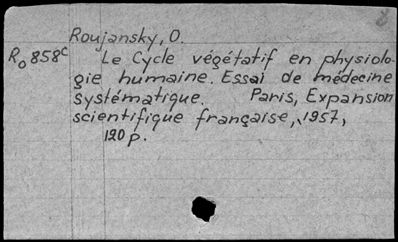 Roujansky, O.
R₀ 858ᶜ Le Cycle végétatif en physiolo-
gie humaine. Essai de médecine
systématique. Paris, Expansion
scientifique française, 1957,
120 p.